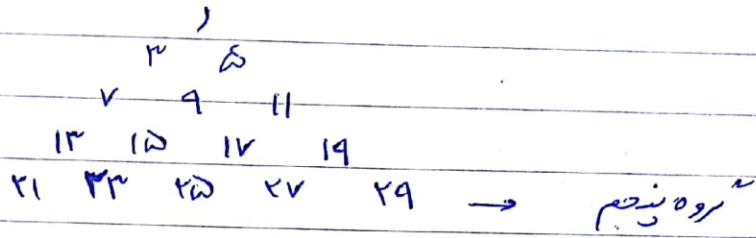 ۱
۳ ۵
۷ ۹ ۱۱
۱۳ ۱۵ ۱۷ ۱۹
۲۱ ۲۳ ۲۵ ۲۷ ۲۹ → گروه پنجم